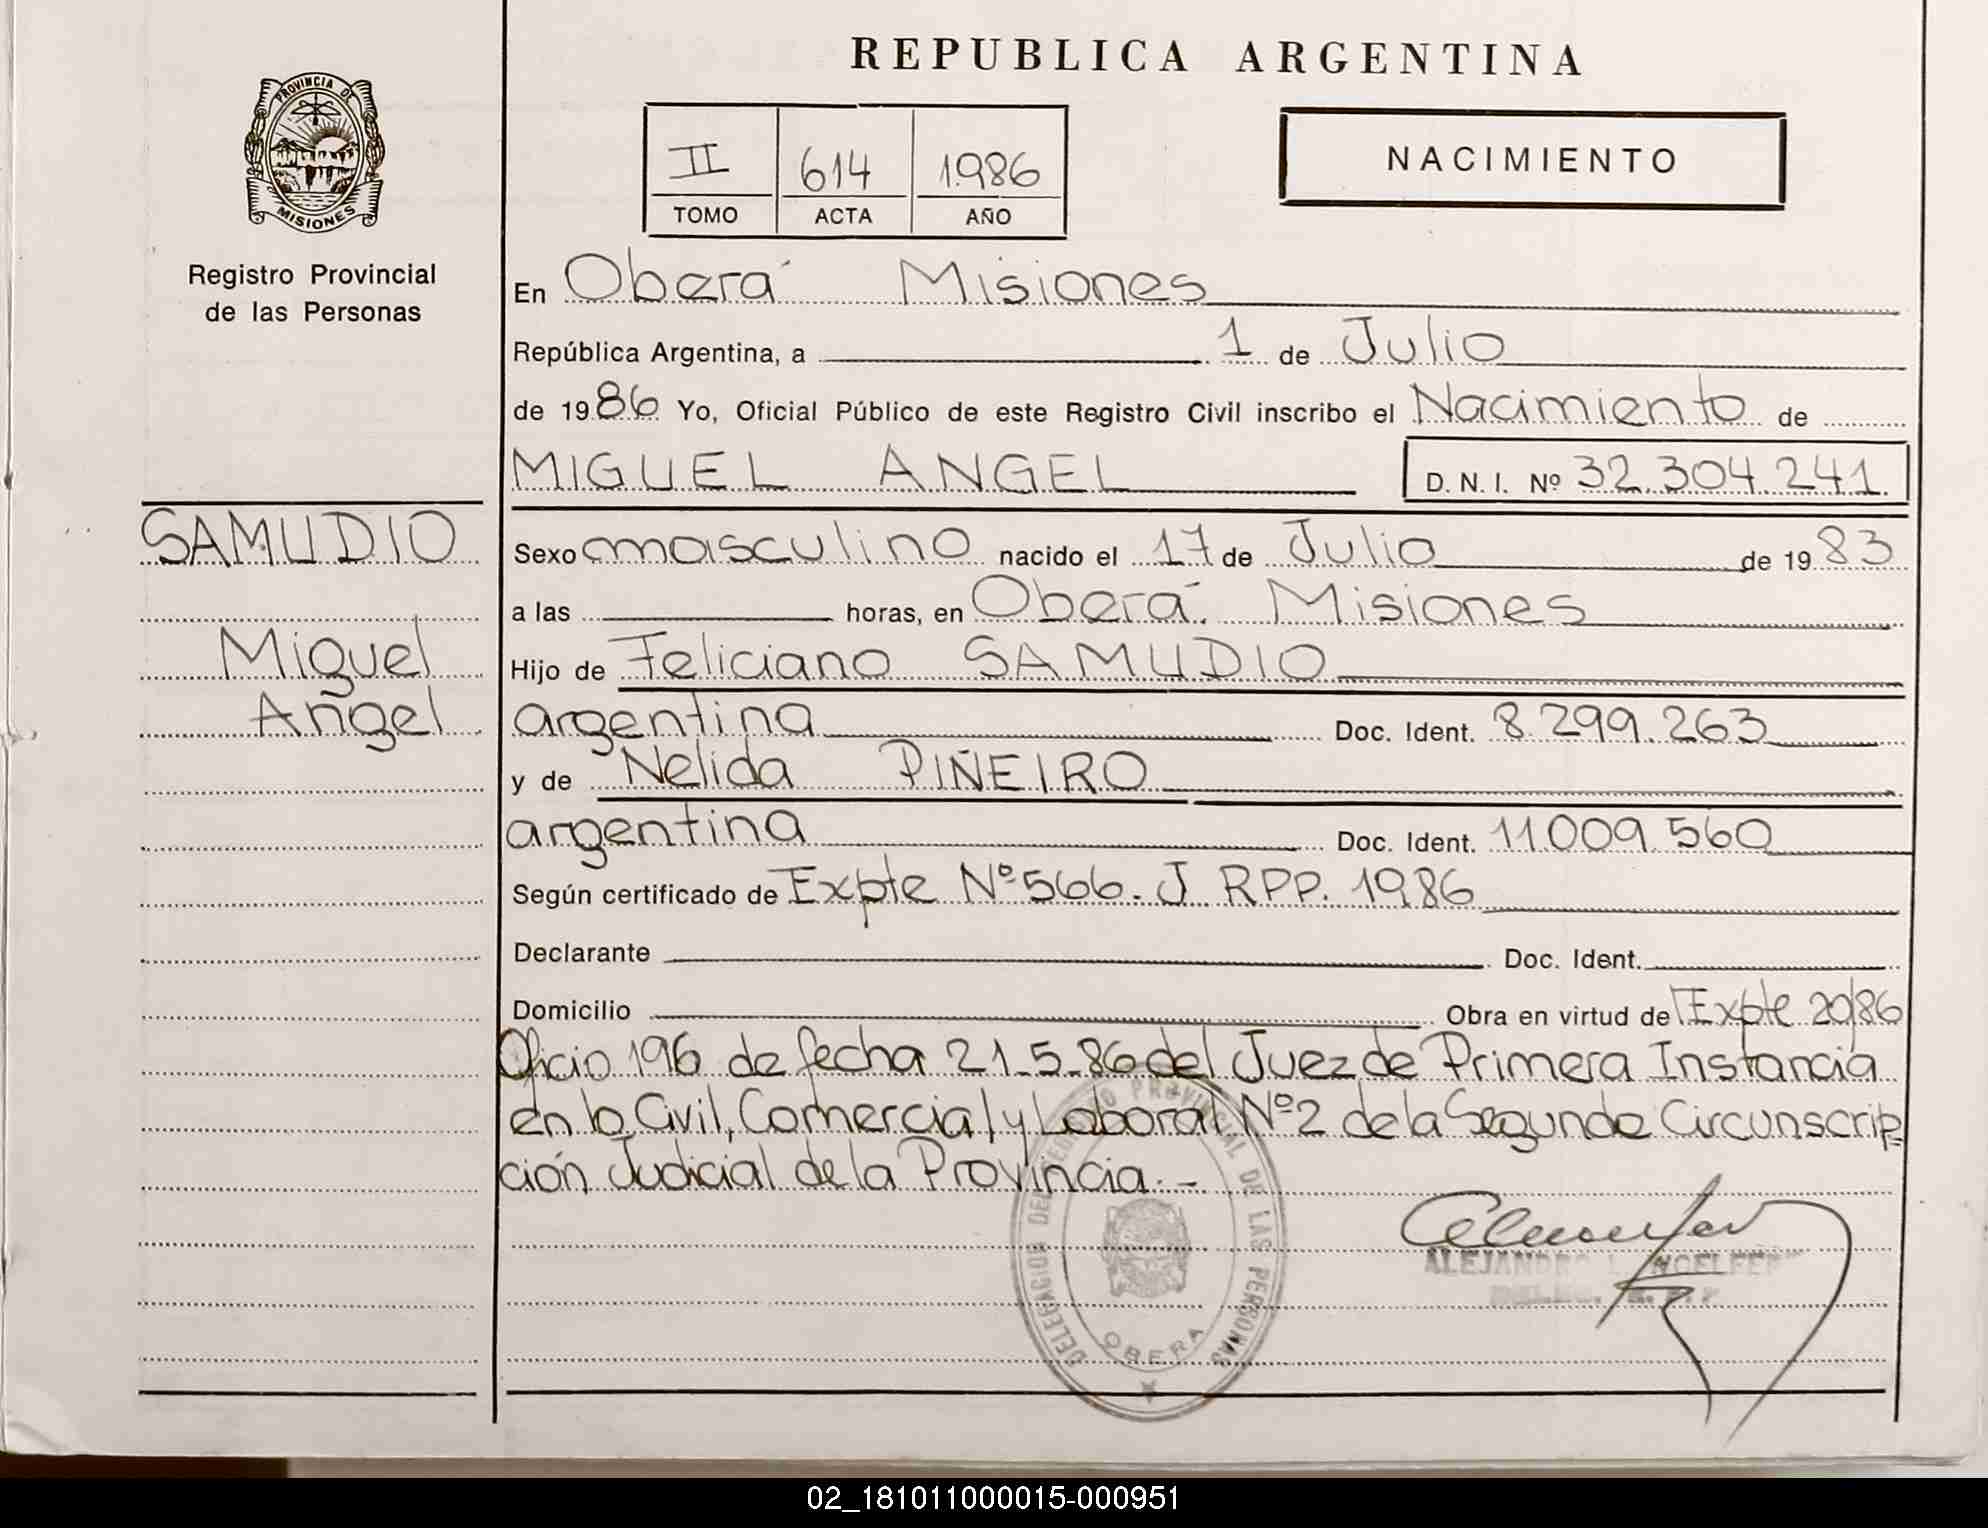 PROVINCIA DE
MISIONES
Registro Provincial
de las Personas
SAMUDIO
Miguel
Angel
REPUBLICA ARGENTINA
II 614 1986
TOMO ACTA AÑO
NACIMIENTO
En Oberá Misiones
República Argentina, a 1 de Julio
de 1986 Yo, Oficial Público de este Registro Civil inscribo el Nacimiento de
MIGUEL ANGEL D. N. I. Nº 32.304.241
Sexo masculino nacido el 17 de Julio de 1983
a las horas, en Oberá Misiones
Hijo de Feliciano SAMUDIO
argentina Doc. Ident. 8.299.263
y de Nelida PIÑEIRO
argentina Doc. Ident. 11.009.560
Según certificado de Expte Nº 566. J RPP. 1986
Declarante Doc. Ident.
Domicilio Obra en virtud de Expte 20/86
Oficio 196 de fecha 21-5-86 del Juez de Primera Instancia
en lo Civil, Comercial y Laboral Nº 2 de la Segunda Circunscrip
ción Judicial de la Provincia.-
DELEGACION DEL REGISTRO PROVINCIAL DE LAS PERSONAS
OBERA
ALEJANDRO L. NOELFER
02_181011000015-000951